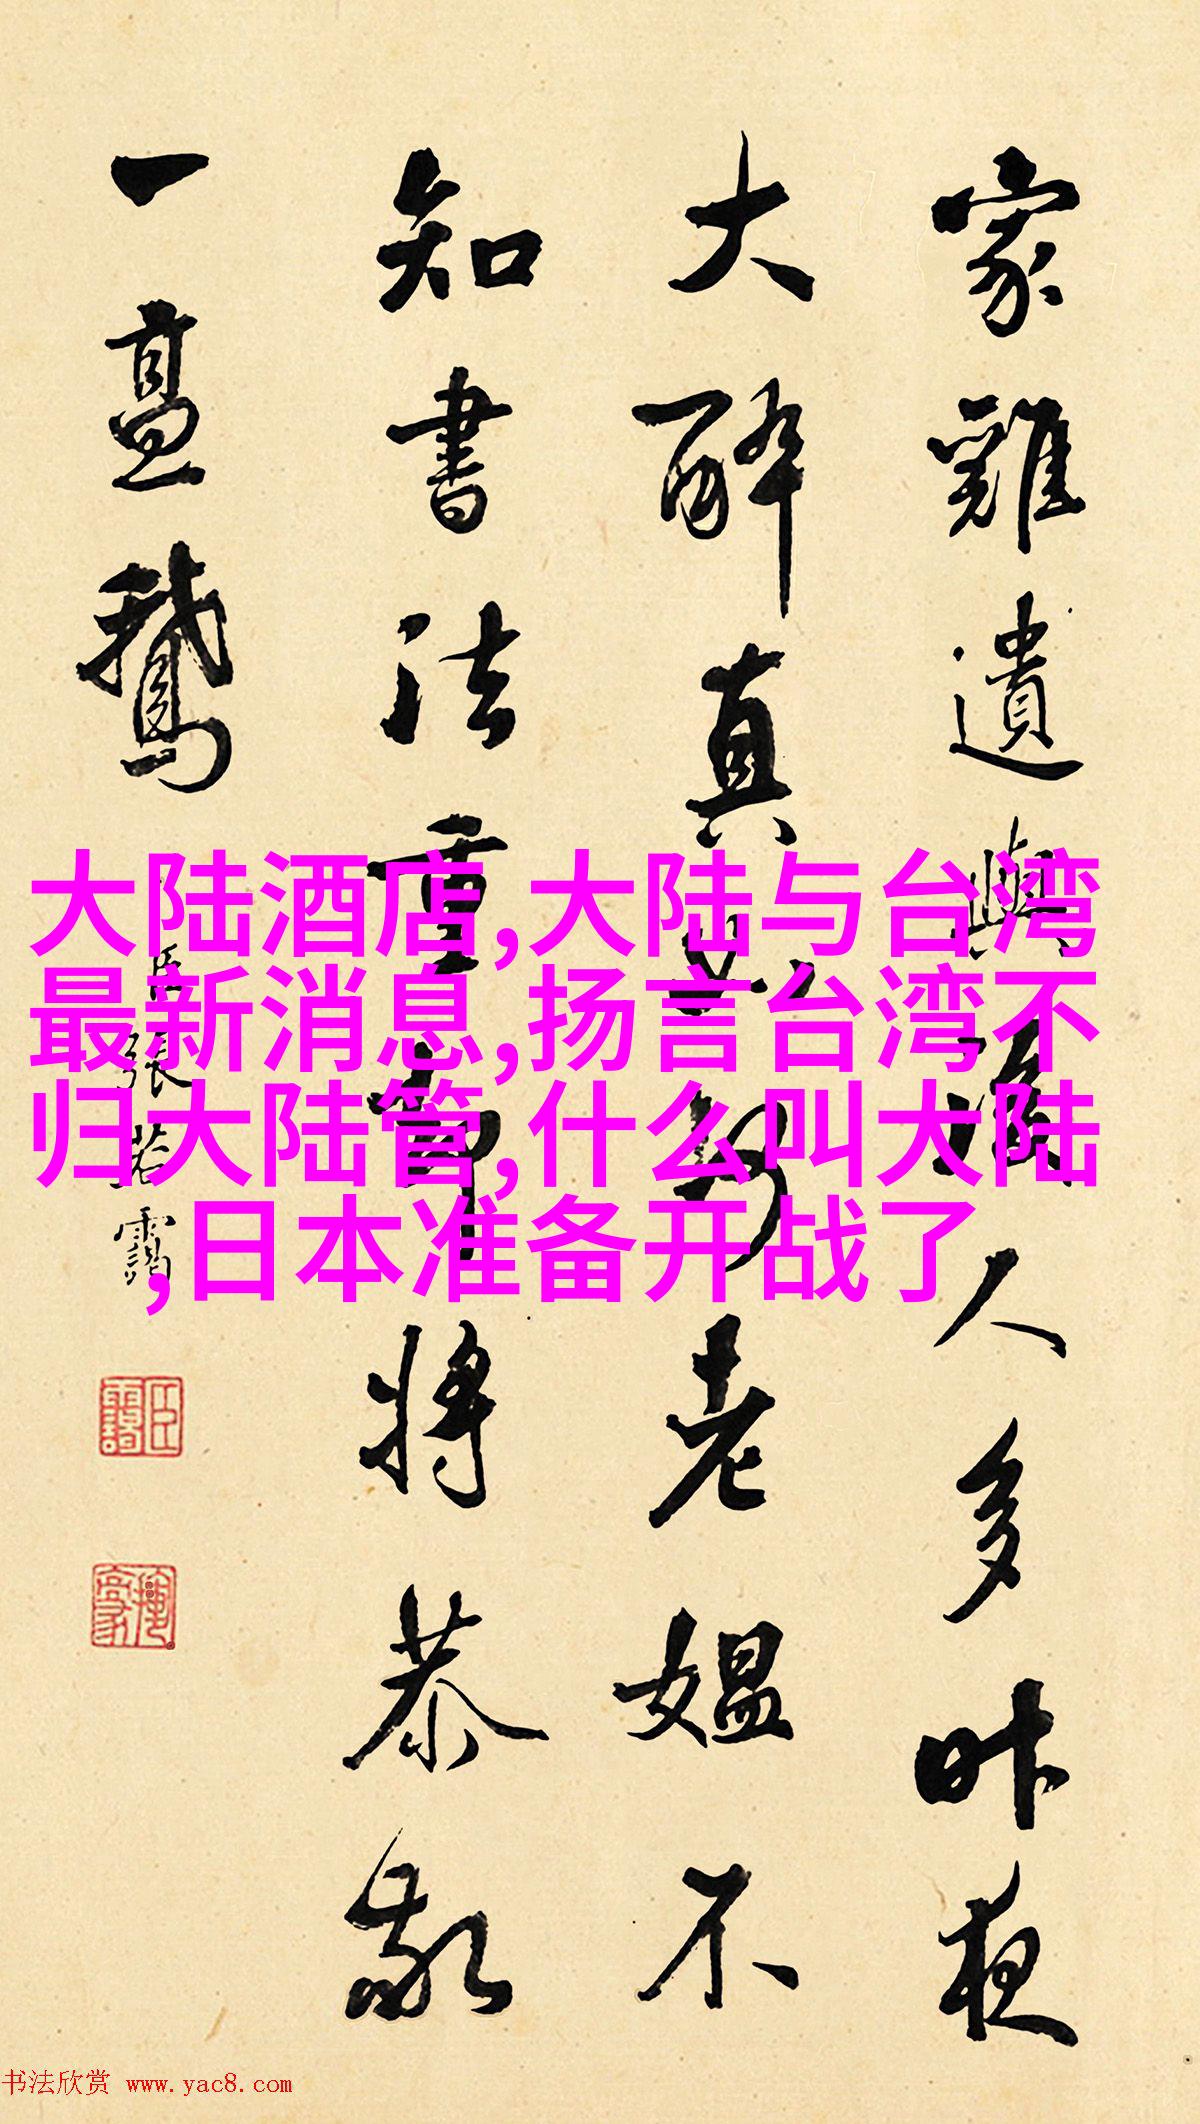 家雞遺與渴人多昨夜
大醉真
老媼不
知書法重
將恭敬
一羣鵝
臣張若靄
大陆酒店,大陆与台湾
最新消息,扬言台湾不
归大陆管,什么叫大陆
,日本准备开战了
书法欣赏 www.yac8.com